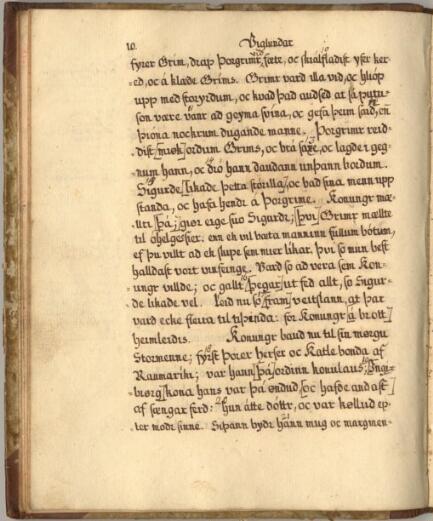 10. Viglundar
fyrer Grim, drap Þorgrimr við fæte, oc skialfladist yfer ker-
ed, oc á klæde Grims. Grimr vard illa vid, oc hliop
upp med storyrdum, oc kvad þad audsed at sá putu-
son være vanr ad geyma svina, oc gefa þeim soid, en
þiona nockrum dugande manne. Þorgrimr reid-
dist miøk ordum Grims, oc brá saxe, oc lagde i geg-
num hann, oc dró hann daudann unþann bordum.
Sigurde likade þetta storilla, oc bad sina menn upp
standa, oc hafa hendr á Þorgrime. Konungr mæ-
llti þá; giør eige suo Sigurdr; þvi Grimr mællte
til óhelges ser. enn ek vil bæta manninn fullum bótum,
ef þu villt ad ek skipe sem mier likar. Þvi so mun best
halldast vort vinfeinge. Vard so ad vera sem Kon-
ungr villde; oc gallt þegar ut fed allt, so Sigur-
de likade vel. Leid nu so fram veitslann, at þar
vard ecke fleira til tiþenda: fór Konungr á brott
heimleidis. Konungr baud nu til sin mørgu
Stormenne; fyrst Þorer herser oc Katle bonda af
Raumariki; var hann þá ordinn konulaus; Ingi-
biørg kona hans var þá ondud, oc hafde andast
af sængar ferd: hun átte dóttr, oc var kollud ep-
ter modr sinne. Siþann bydr hann mug oc margmen-